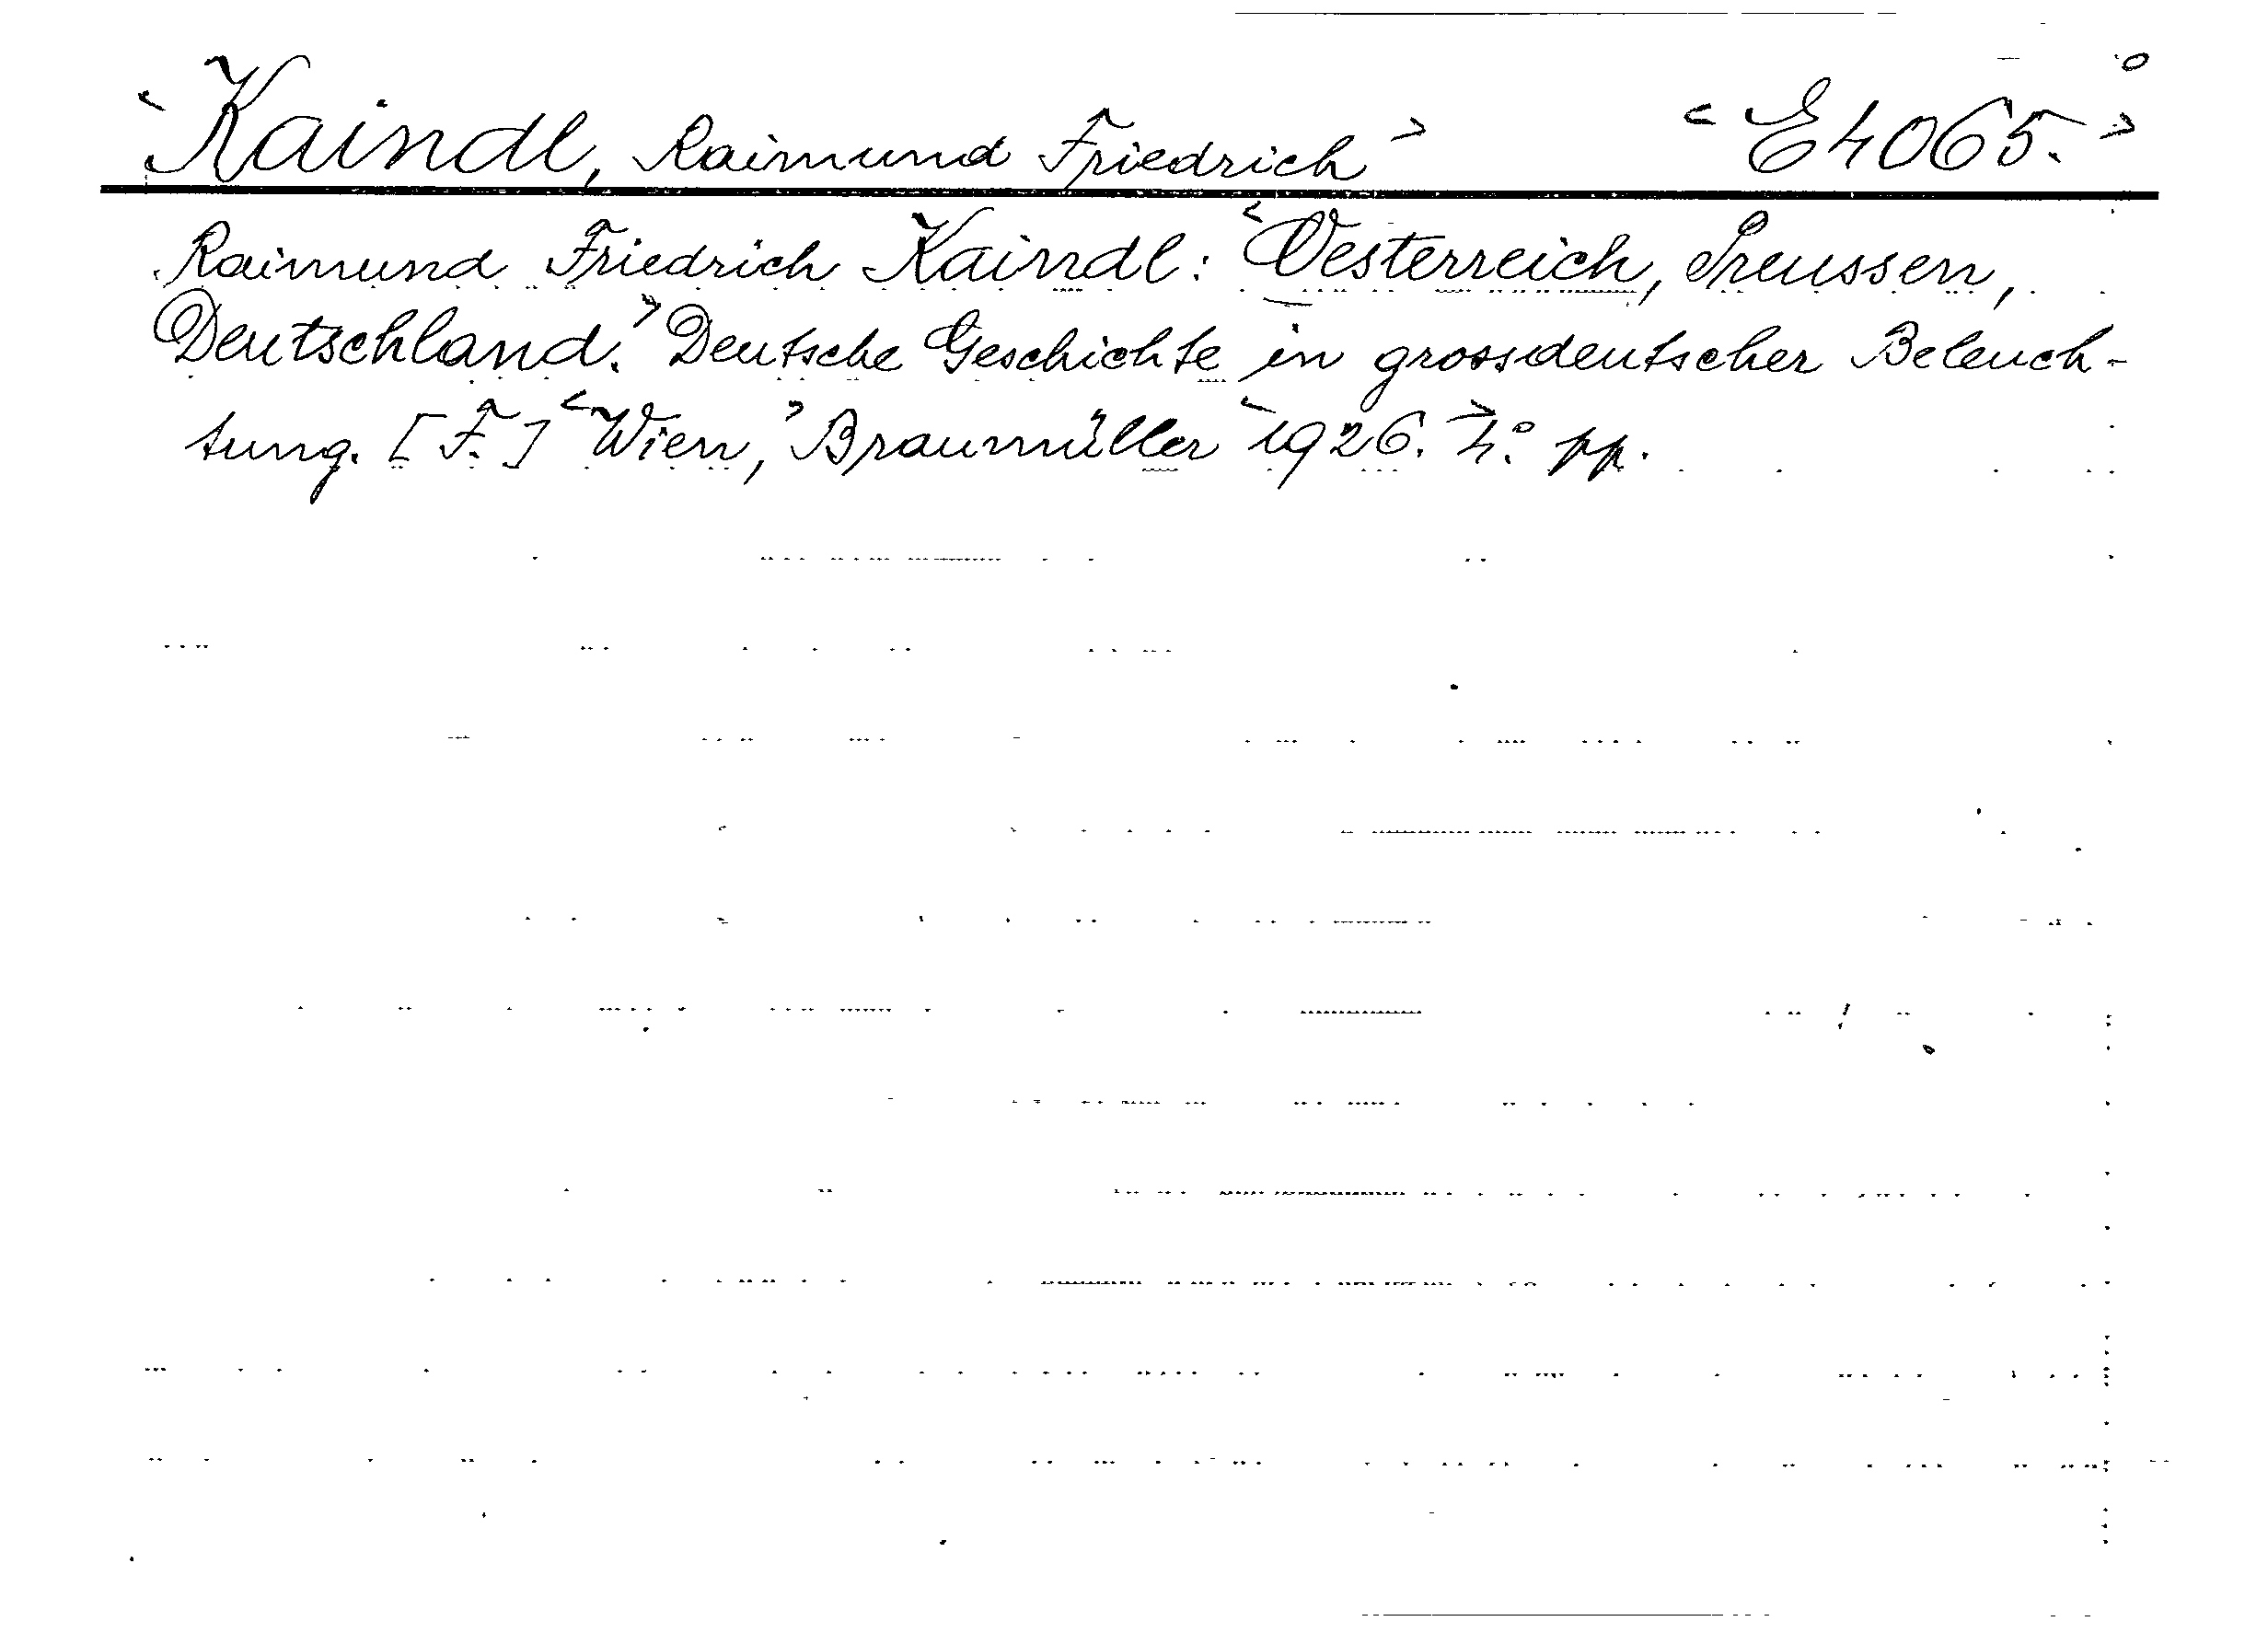 <Kaindl, Raimund Friedrich> <E4065.>
Raimund Friedrich Kaindl: <Oesterreich, Preussen,
Deutschland.> Deutsche Geschichte in grossdeutscher Beleuch-
tung. [F.] <Wien,> Braumüller <1926.> 4.° pp.